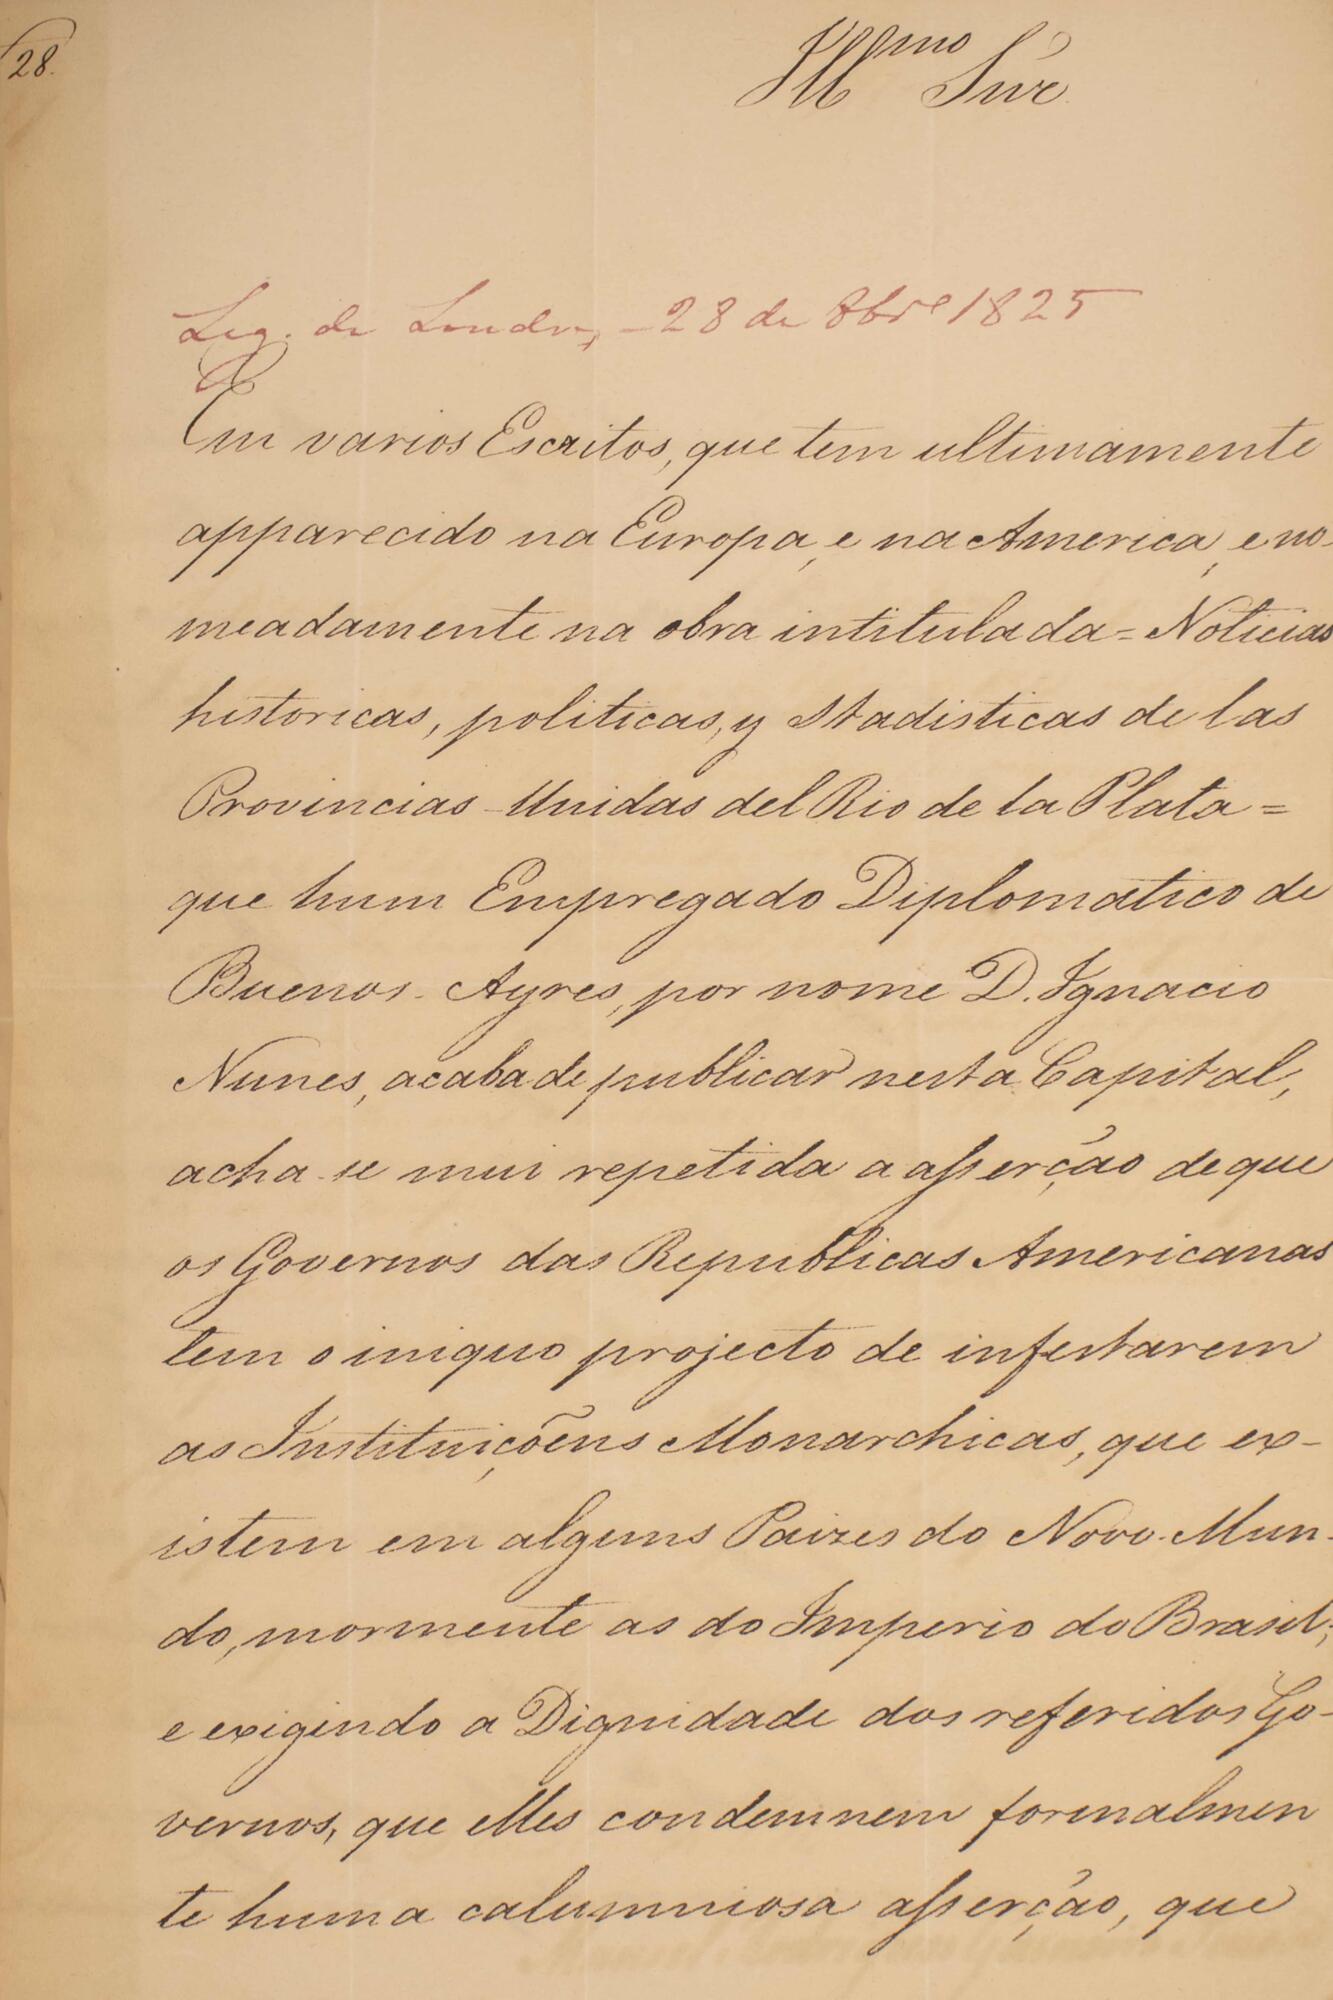 28.
Illmo Snr
Leg. de Londres, - 28 de 8bre 1825
Em varios Escritos, que tem ultimamente
apparecido na Europa, e na America, e no-
meadamente na obra intitulada = Noticias
historicas, politicas, y Stadisticas de las
Provincias Unidas del Rio de la Plata =
que hum Empregado Diplomatico de
Buenos-Ayres, por nome D. Ignacio
Nunes, acaba de publicar nesta Capital,
acha-se mui repetida a asserção de que
os Governos das Republicas Americanas
tem o iniquo projecto de infestarem
as Instituiçõens Monarchicas, que ex-
istem em alguns Paizes do Novo-Mun-
do, mormente as do Imperio do Brasil;
e exigindo a Dignidade dos referidos Go-
vernos, que elles condemnem formalmen
te huma calumniosa asserção, que